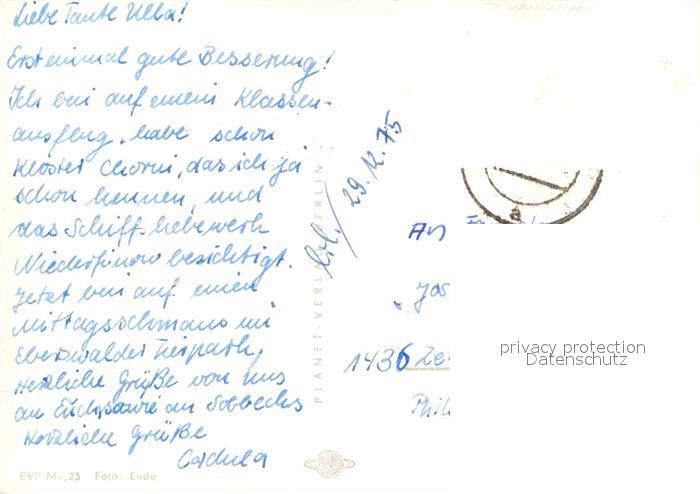 Liebe Tante Ulla!
Ersteinmal gute Besserung!
Ich bin auf einem Klassen-
ausflug, habe schon
Kloster Chorin, das ich ja
schon kennen, und
das Schiffshebewerk
Niederfinow besichtigt.
Jetzt bin auf einen
Mittagsschmaus im
Eberswalder Tierpark,
Herzliche Grüße von uns
an Euch, sowie an
Herzliche Grüße
Cordula
EVP M -,25 Foto: Ende
PLANET-VERLAG BERLIN
29.12.75
An
1436 Ze
privacy protection
Datenschutz